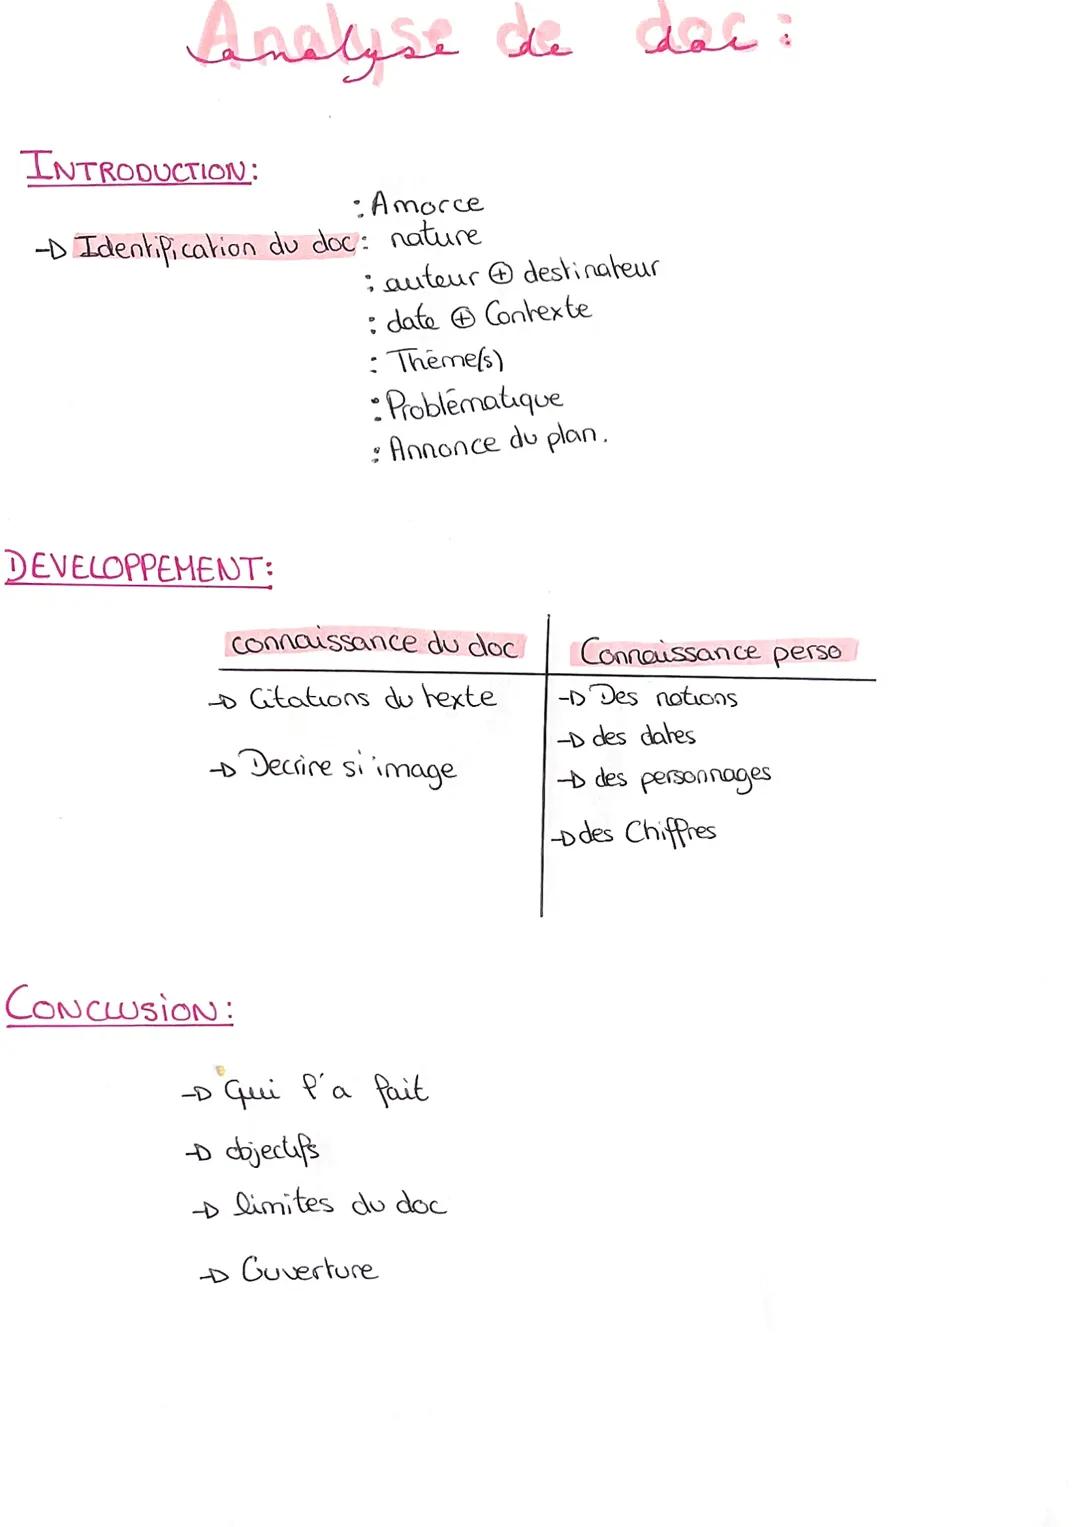 Analyse de doc :
INTRODUCTION:
: Amorce
→ Identification du doc : nature
: auteur ⊕ destinateur
: date ⊕ Contexte
: Thème(s)
: Problématique
: Annonce du plan.
DEVELOPPEMENT:
connaissance du doc | Connaissance perso
→ Citations du texte | → Des notions
→ des dates
→ Decrire si image | → des personnages
→ des Chiffres
CONCLUSION:
→ Qui l'a fait
→ objectifs
→ limites du doc
→ Ouverture